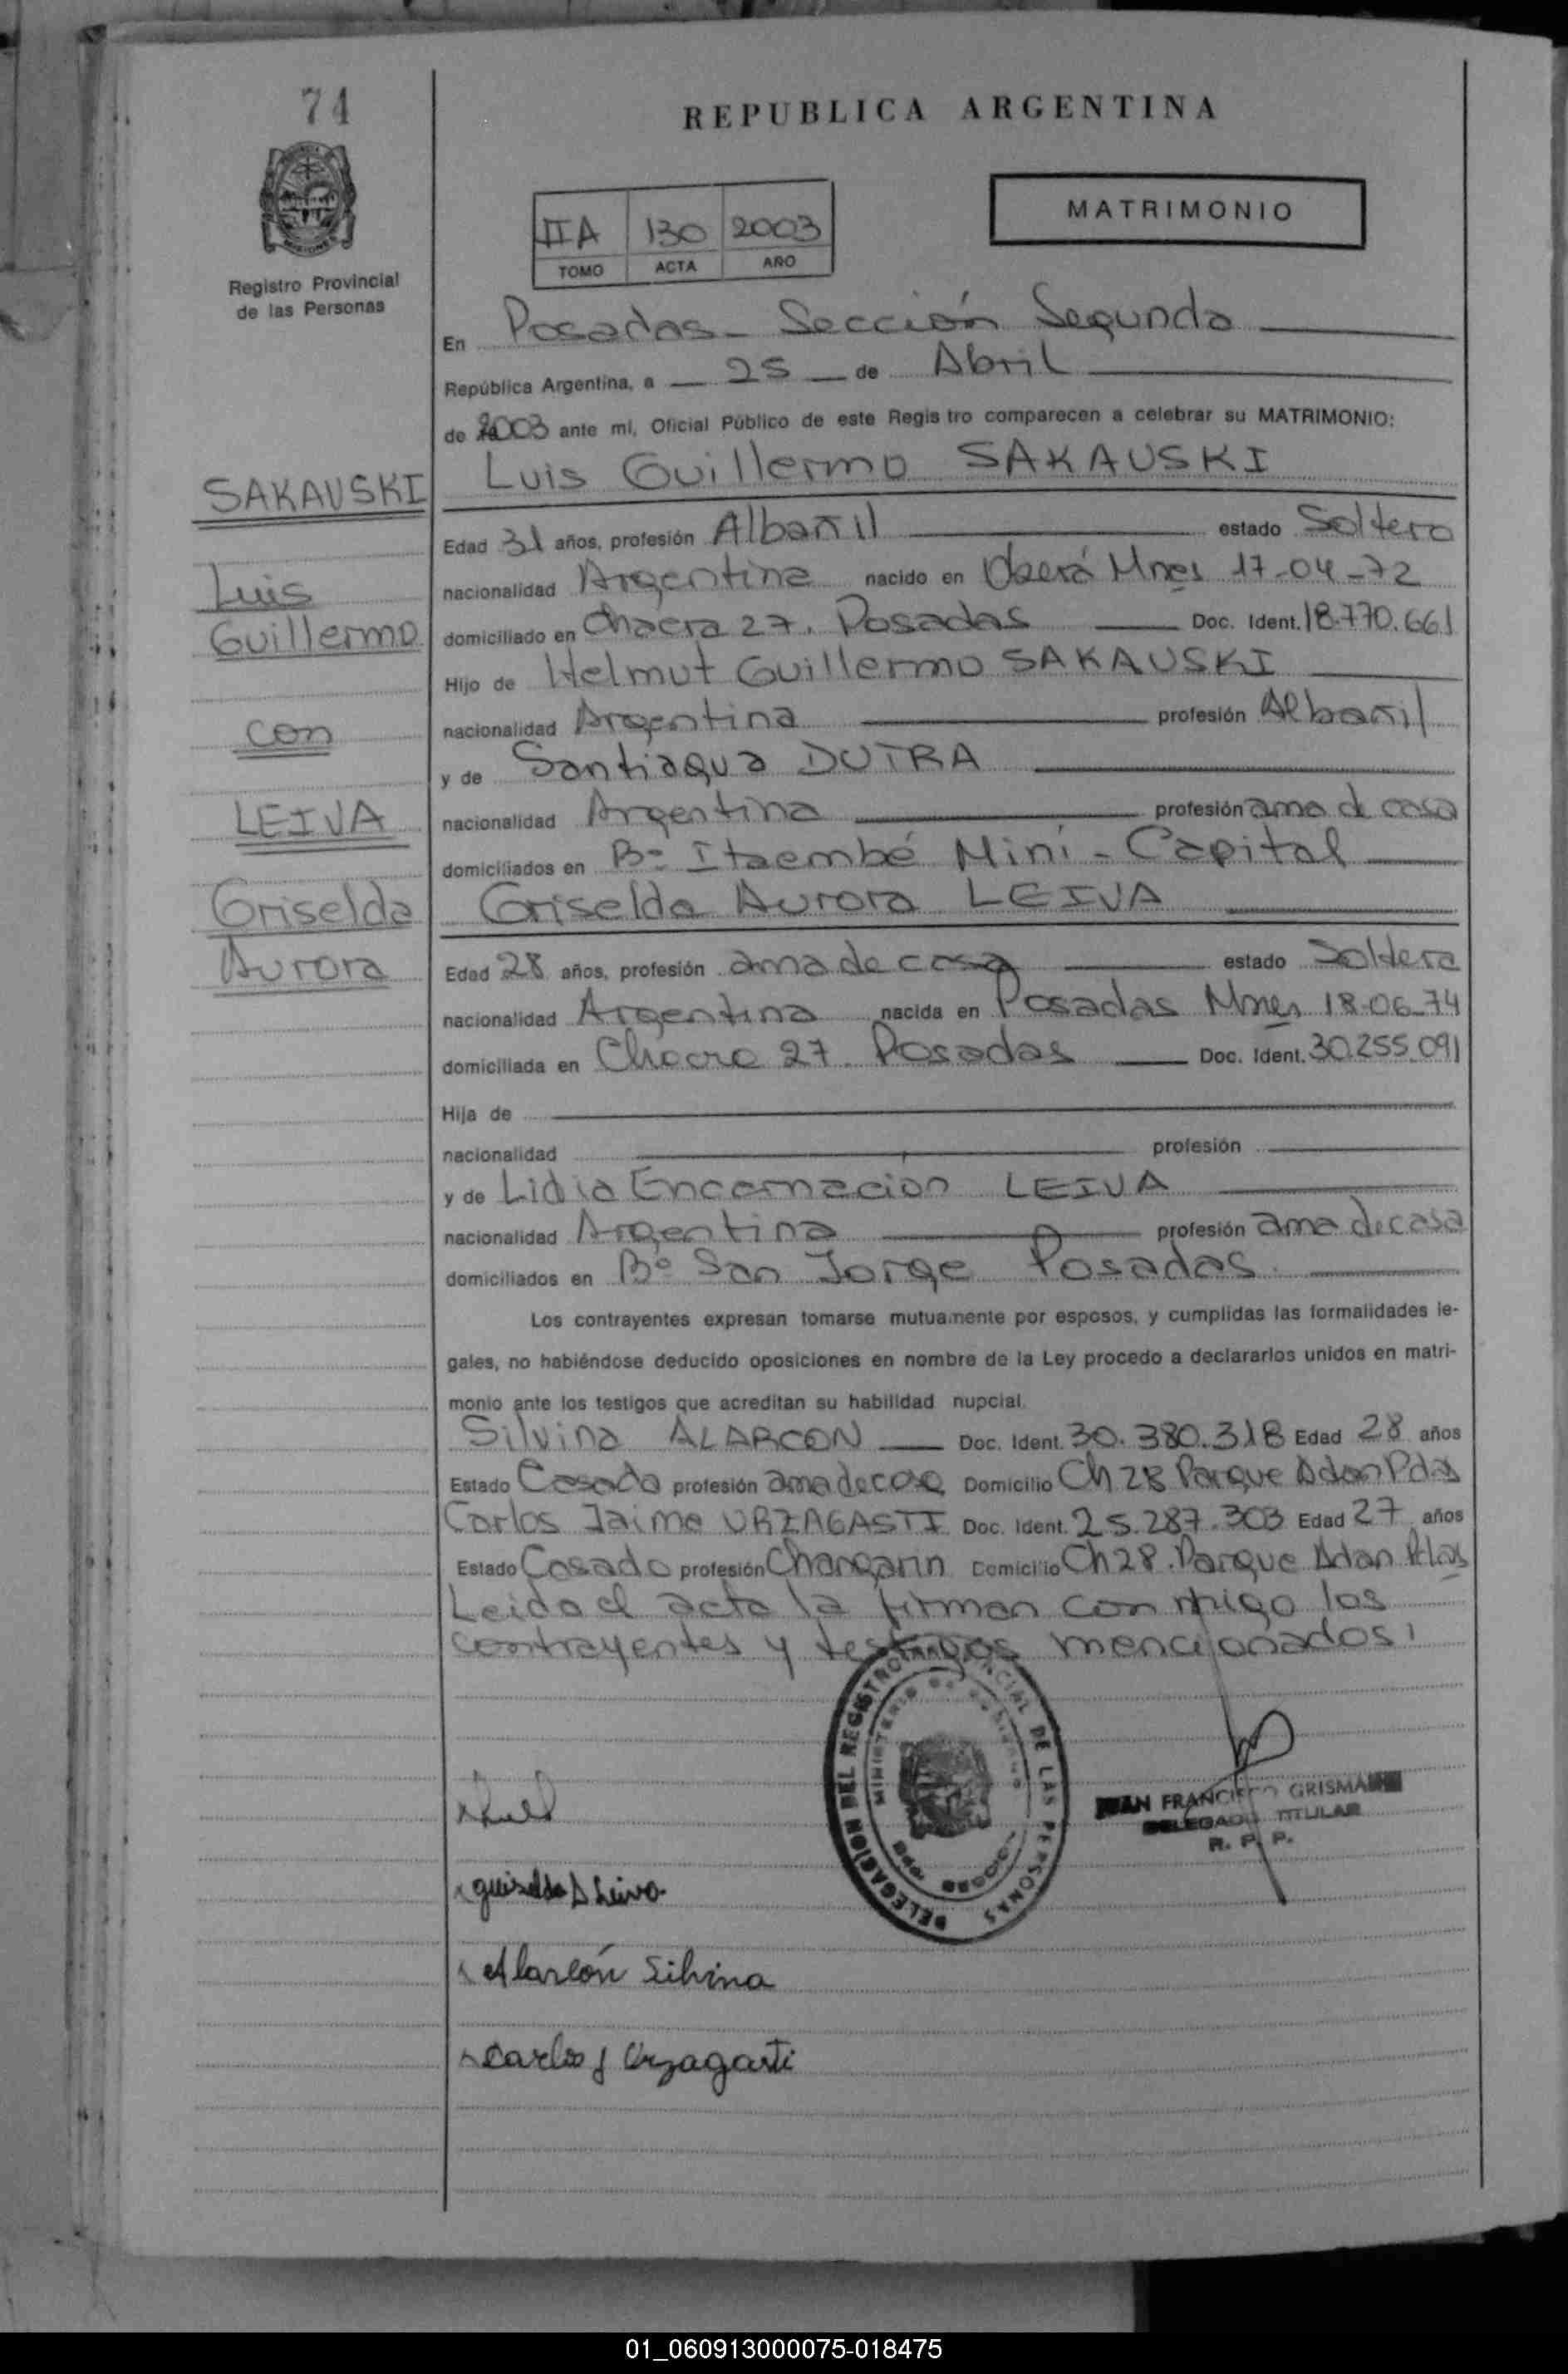 74
REPUBLICA ARGENTINA
MATRIMONIO
IIA 130 2003
TOMO ACTA AÑO
Registro Provincial
de las Personas
En Posadas - Sección Segunda
República Argentina, a 25 de Abril
de 2003 ante mi, Oficial Público de este Regis tro comparecen a celebrar su MATRIMONIO:
SAKAUSKI
Luis
Guillermo
con
LEIVA
Griselda
Aurora
Luis Guillermo SAKAUSKI
Edad 31 años, profesión Albañil estado Soltero
nacionalidad Argentina nacido en Oberá Mnes 17-04-72
domiciliado en Chacra 27. Posadas Doc. Ident. 18.770.661
Hijo de Helmut Guillermo SAKAUSKI
nacionalidad Argentina profesión Albañil
y de Santiagua DUTRA
nacionalidad Argentina profesión ama de casa
domiciliados en Bº Itaembé Mini - Capital
Griselda Aurora LEIVA
Edad 28 años, profesión ama de casa estado Soltera
nacionalidad Argentina nacida en Posadas Mnes 18-06-74
domiciliada en Chacra 27. Posadas Doc. Ident. 30.255.091
Hija de
nacionalidad profesión
y de Lidia Encarnacion LEIVA
nacionalidad Argentina profesión ama de casa
domiciliados en Bº San Jorge Posadas.
Los contrayentes expresan tomarse mutuamente por esposos, y cumplidas las formalidades le-
gales, no habiéndose deducido oposiciones en nombre de la Ley procedo a declararlos unidos en matri-
monio ante los testigos que acreditan su habilidad nupcial.
Silvina ALARCON Doc. Ident. 30.380.318 Edad 28 años
Estado Casada profesión ama de casa Domicilio Ch 28 Parque Adan Pdas
Carlos Jaime URZAGASTI Doc. Ident. 25.287.303 Edad 27 años
Estado Casado profesión Changarin Domicilio Ch 28. Parque Adan Pdas
Leida el acta la firman con migo los
contrayentes y testigos mencionados.
DELEGACION DEL REGISTRO PROVINCIAL DE LAS PERSONAS
MINISTERIO DE GOBIERNO
JUAN FRANCISCO GRISMA
DELEGADO TITULAR
R. P. P.
Griselda A Leiva
Alarcón Silvina
Carlos J Urzagasti
01_060913000075-018475